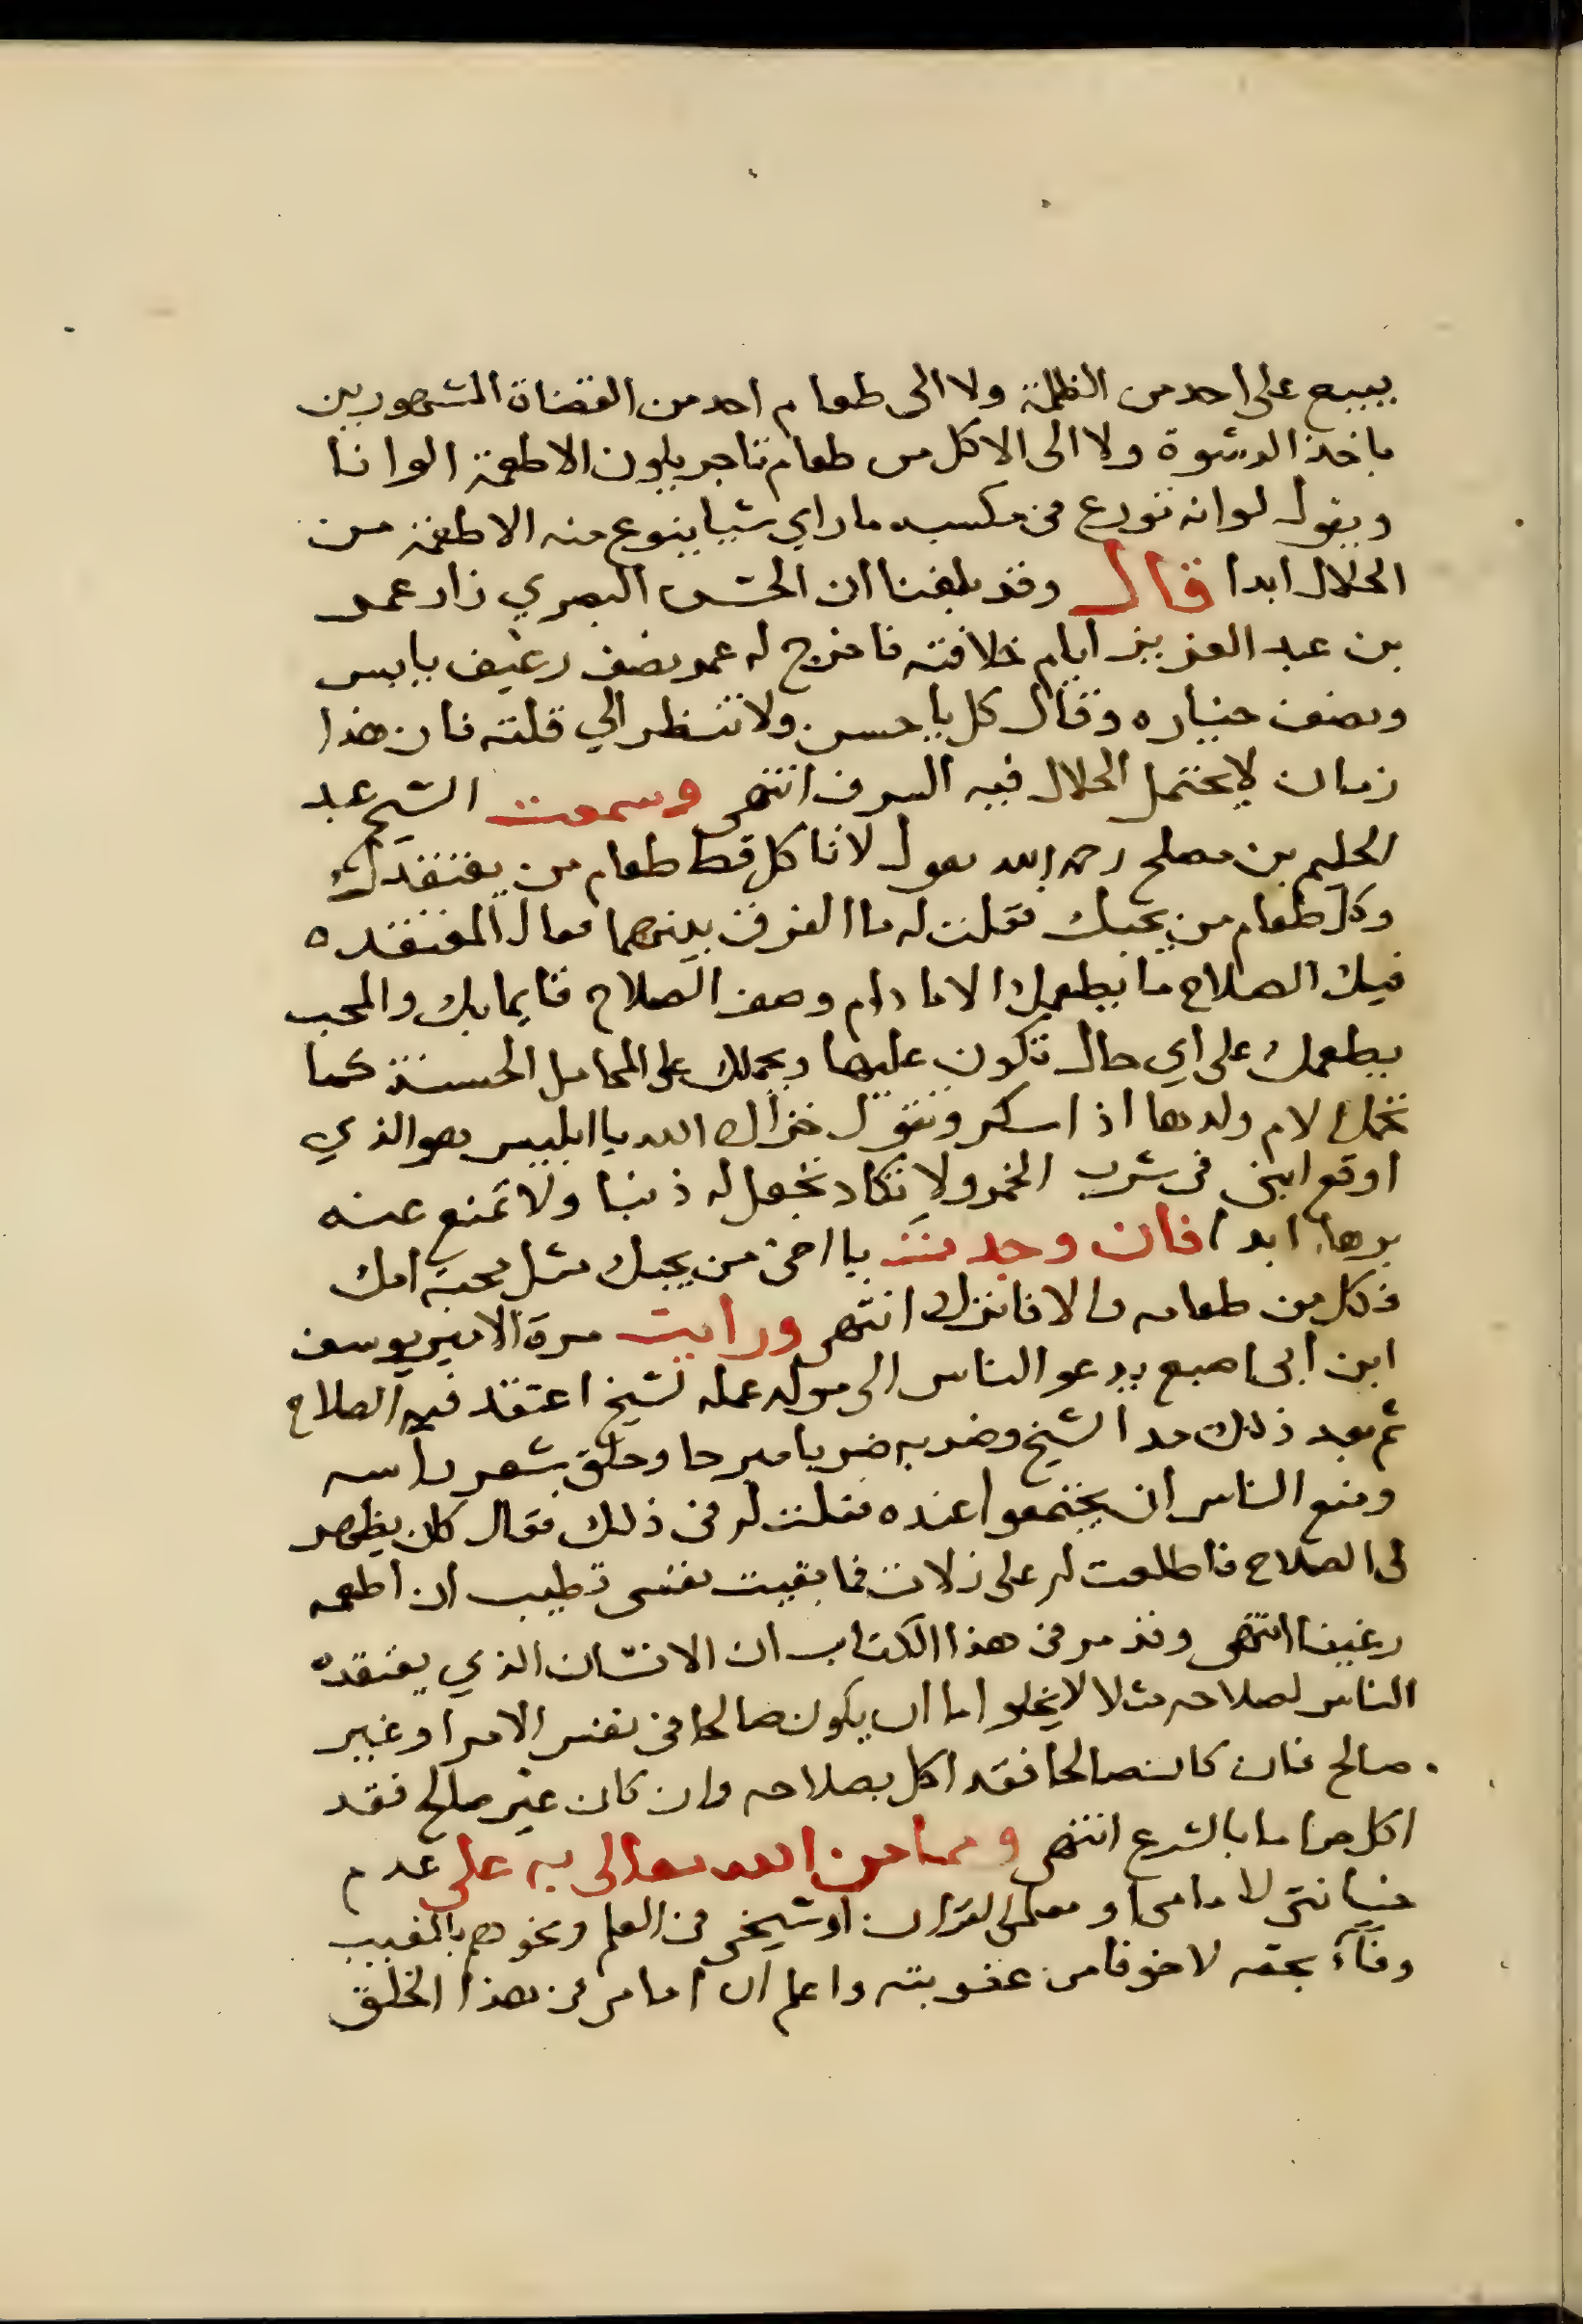 يبيع على احد من الظلمة ولا الى طعام احد من القضاة المشهورين
باخذ الرشوة ولا الى الاكل من طعام تاجر يلون الاطعمة الوانا
ويقول لو انه تورع في مكسبه ما راي شيا ينوع منه الاطعمة من
الحلال ابدا قال وقد بلغنا ان الحسن البصري زار عمر
بن عبد العزيز ايام خلافته فاخرج له عمر نصف رغيف يابس
ونصف خياره وقال كل يا حسن ولا تنظر الي قلته فان هذا
زمان لا يحتمل الحلال فيه السرف انتهى وسمعت الشيخ عبد
الحليم بن مصلح رحمه الله يقول لا تاكل قط طعام من يعتقدك
وكل طعام من يحبك فقلت له ما الفرق بينهما فقال المعتقده
فيك الصلاح ما يطعمك الا ما دام وصف الصلاح قايما بك والمحب
يطعمك على اي حال تكون عليها ويحملك على المحامل الحسنة كما
تحمل الام ولدها اذا سكر وتقول خزاك الله يا ابليس هو الذي
اوقع ابني في شرب الخمر ولا تكاد تجعل له ذنبا ولا تمنع عنه
برها ابدا فان وجدت يا اخي من يحبك مثل محبة امك
فكل من طعامه والا فاترك انتهى ورايت مرة الامير يوسف
ابن ابي اصبع يدعو الناس الى مولد عمله لشيخ اعتقد فيه الصلاح
ثم بعد ذلك مد الشيخ وضربه ضربا مبرحا وحلق شعر راسه
ومنع الناس ان يجتمعوا عنده فقلت له في ذلك فقال كان يظهر
لي الصلاح فاطلعت له على زلات فما بقيت نفسي تطيب ان اطعمه
رغيفا انتهى وقد مر في هذا الكتاب ان الانسان الذي يعتقده
الناس لصلاحه مثلا لا يخلو اما ان يكون صالحا في نفس الامر او غير
صالح فان كان صالحا فقد اكل بصلاحه وان كان غير صالح فقد
اكل حراما بالشرع انتهى ومما من الله تعالى به على عدم
خيانتي لامامي او معلمي القران او شيخي في العلم ونحوهم بالغيب
وفآء بحقه لا خوفا من عقوبته واعلم ان امامي من هذا الخلق